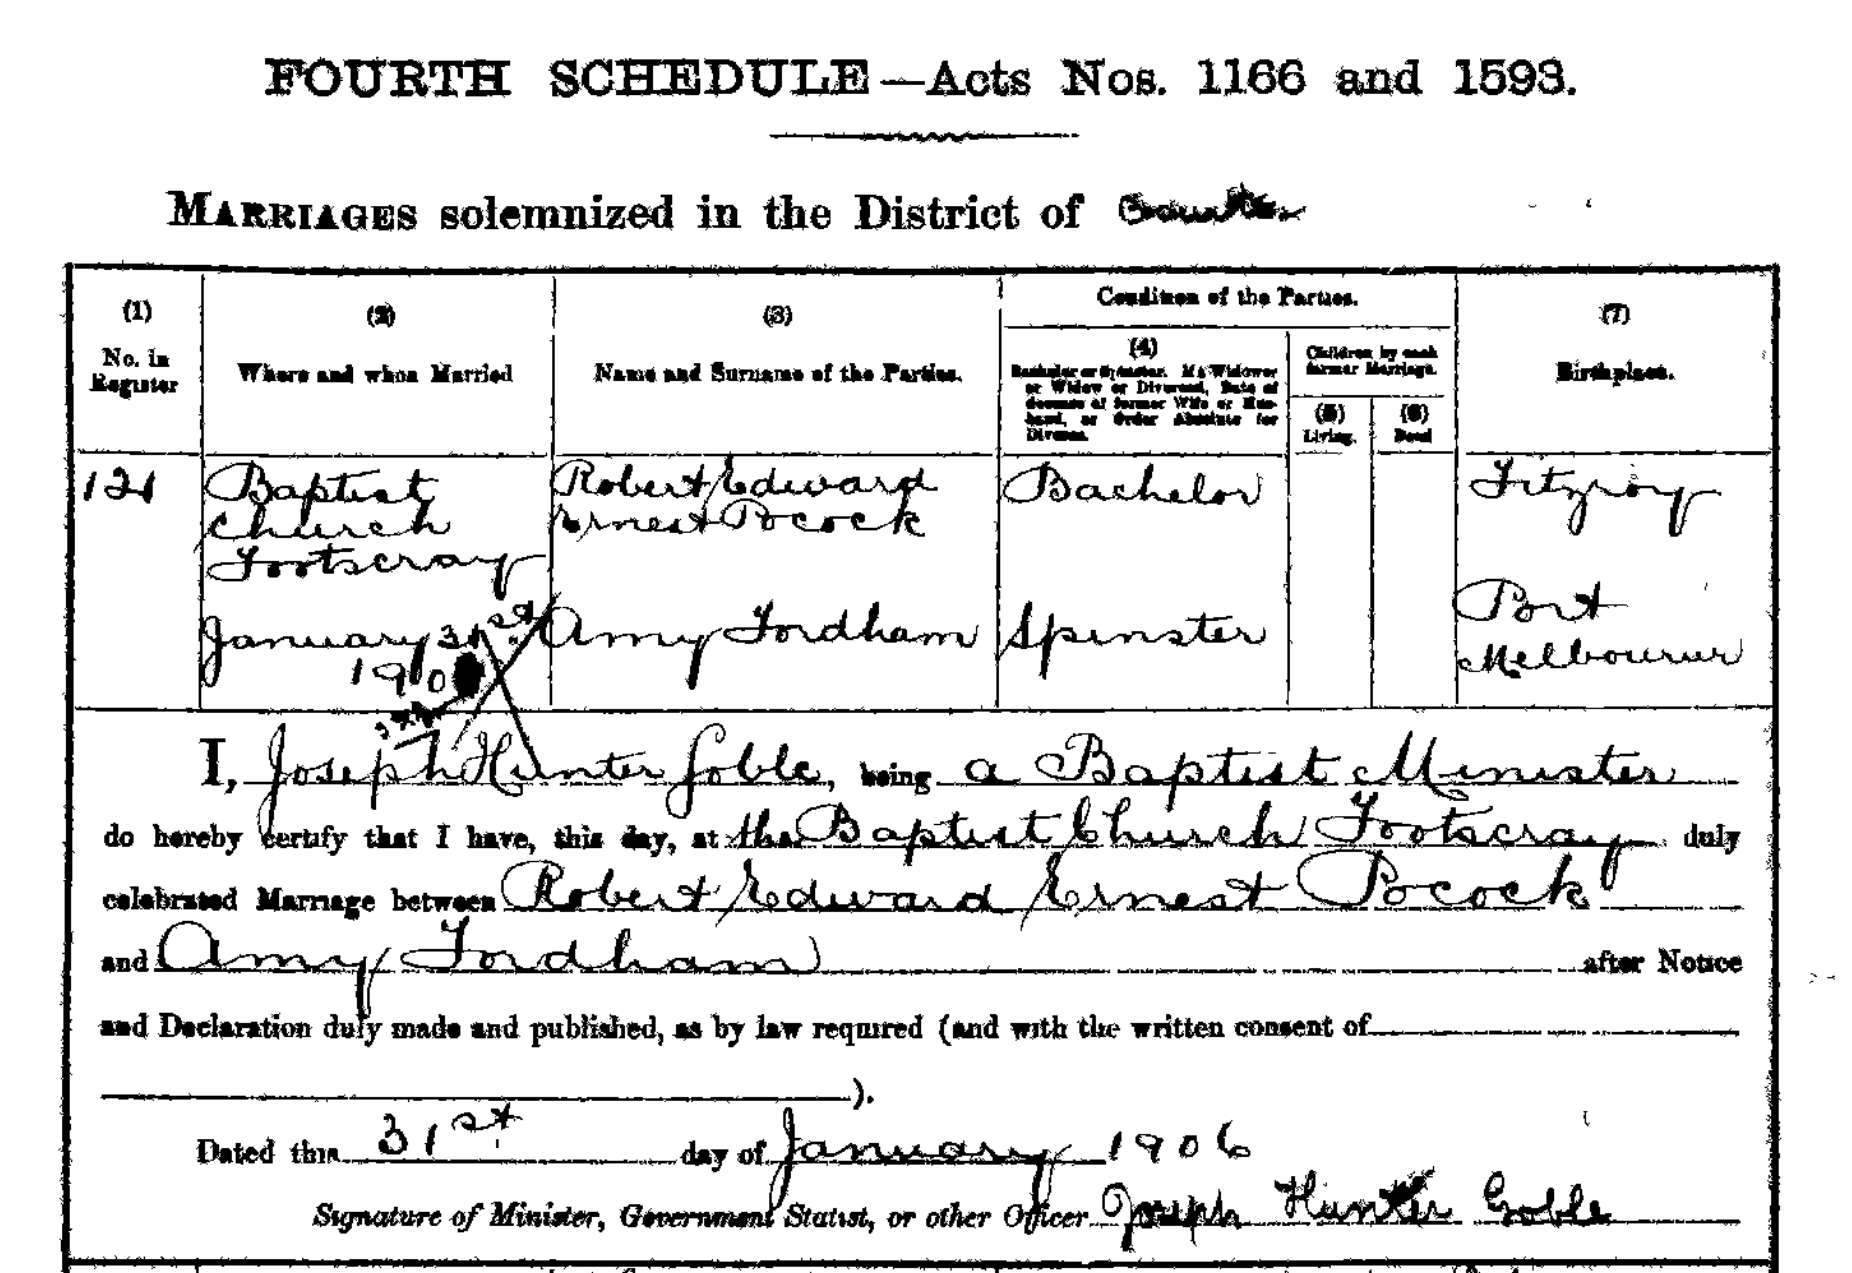 FOURTH SCHEDULE—Acts Nos. 1166 and 1593.
MARRIAGES solemnized in the District of
(1)
No. in
Register
(2)
Where and when Married
(3)
Name and Surname of the Parties.
Condition of the Parties.
(4)
Bachelor or Spinster. If a Widower
or Widow or Divorced, Date of
decease of former Wife or Hus-
band, or Order Absolute for
Divorce.
Children by each
former Marriage.
(5)
Living.
(6)
Dead
(7)
Birthplace.
121
Baptist
Church
Footscray
January 31st
190
Robert Edward
Ernest Pocock
Amy Fordham
Bachelor
Spinster
Fitzroy
Port
Melbourne
I, Joseph Hunter Goble, being a Baptist Minister
do hereby certify that I have, this day, at the Baptist Church Footscray duly
celebrated Marriage between Robert Edward Ernest Pocock
and Amy Fordham after Notice
and Declaration duly made and published, as by law required (and with the written consent of
).
Dated this 31st day of January 1906
Signature of Minister, Government Statist, or other Officer Joseph Hunter Goble